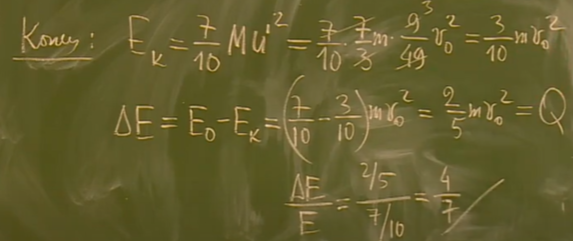 Конец: E_к = 7/10 Mu'² = 7/10 · 7/3 m · 9³/49 v₀² = 3/10 mv₀²
ΔE = E₀ - E_к = (7/10 - 3/10) mv₀² = 2/5 mv₀² = Q
ΔE/E = (2/5)/(7/10) = 4/7